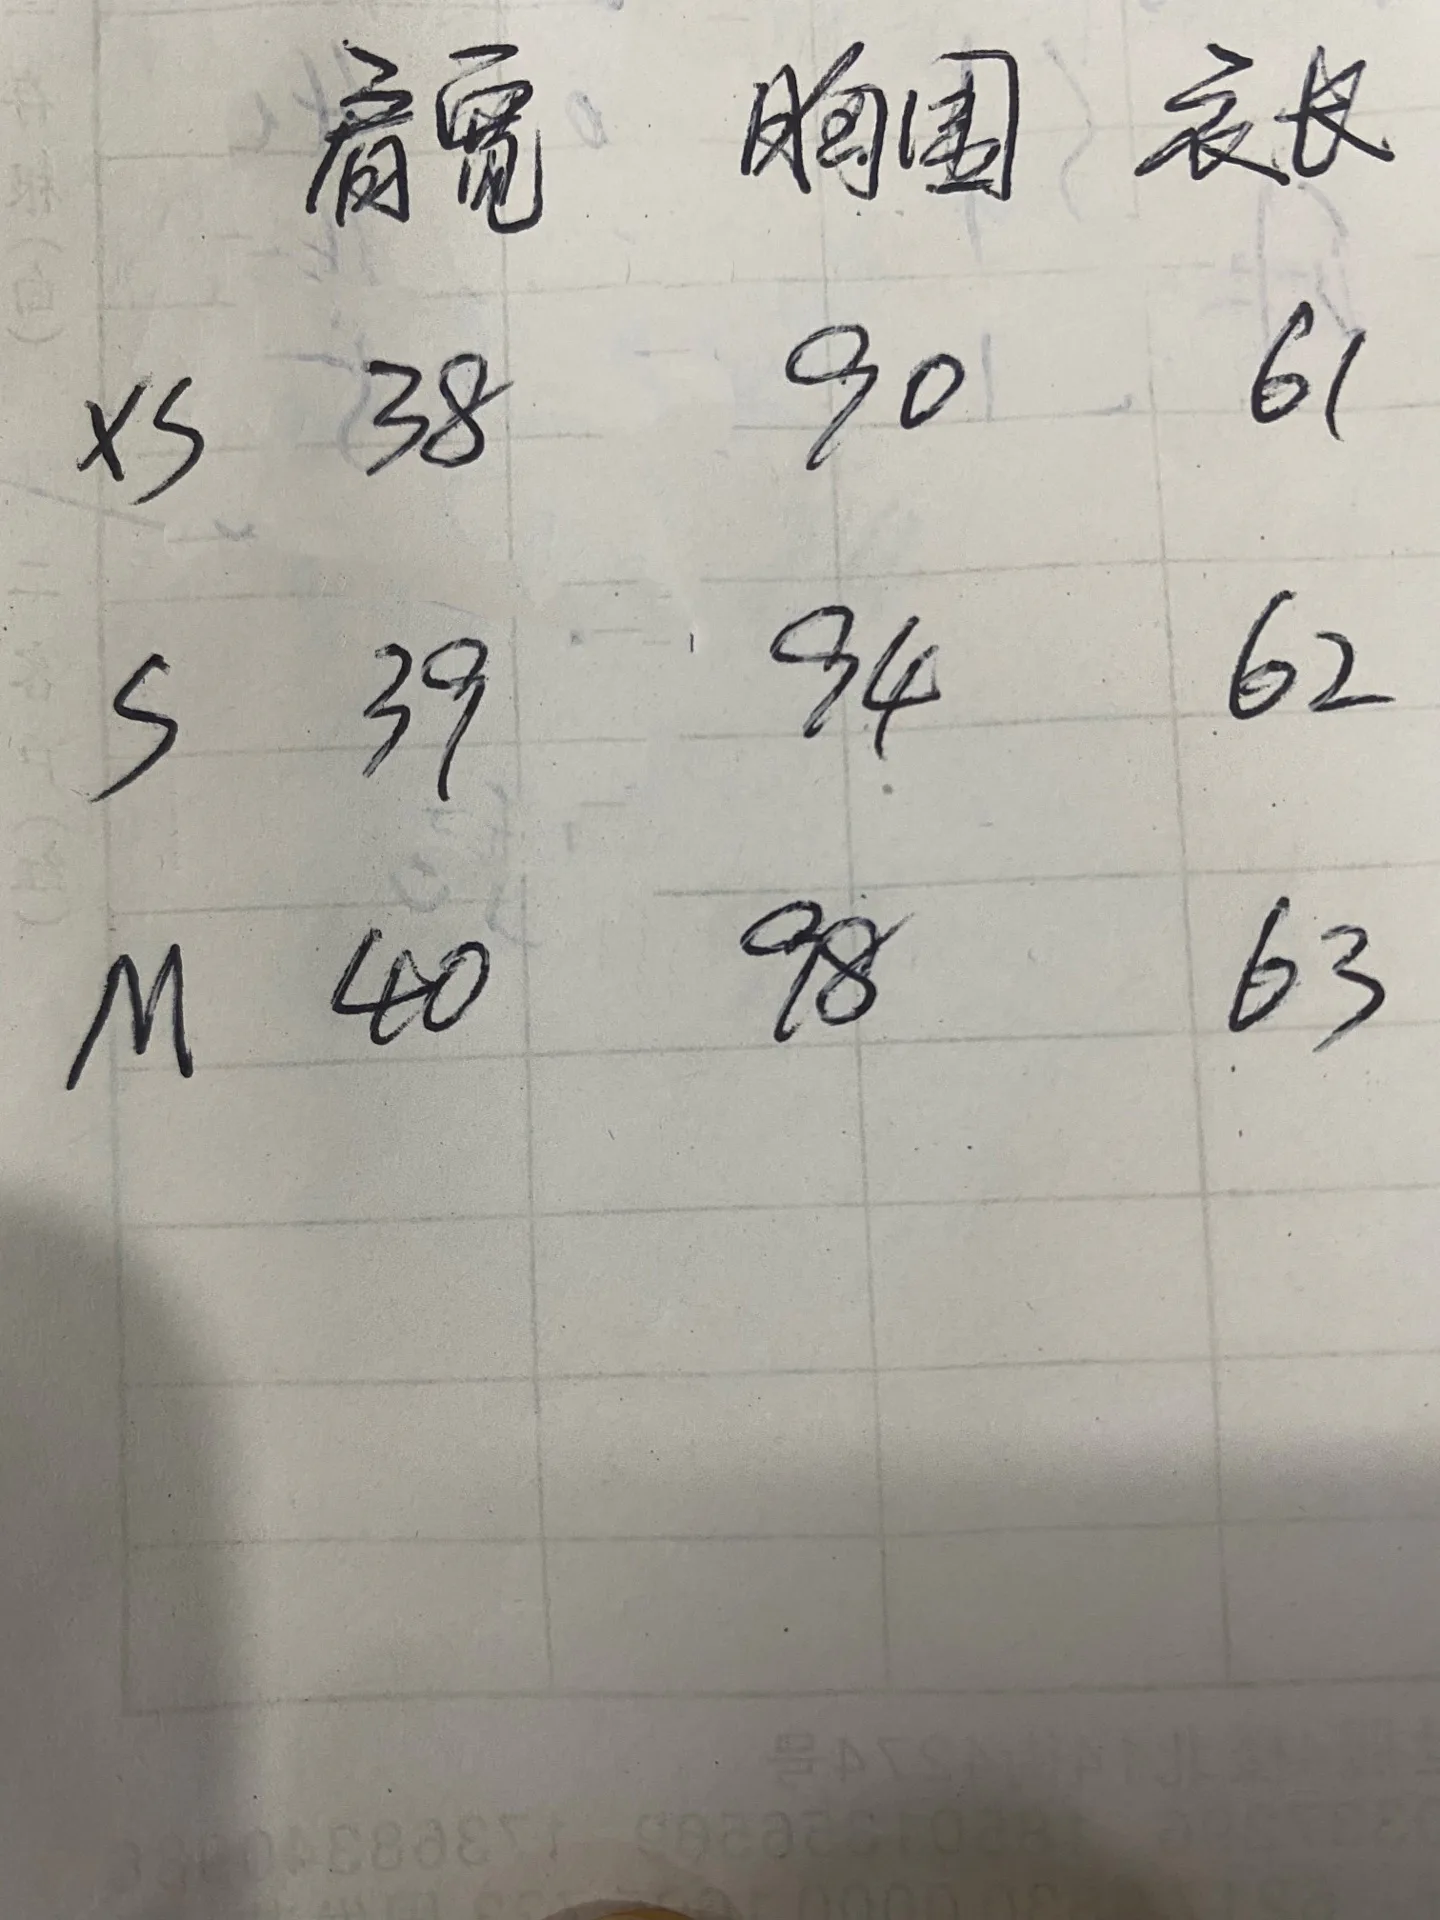 肩宽 胸围 衣长
XS 38 90 61
S 39 94 62
M 40 98 63